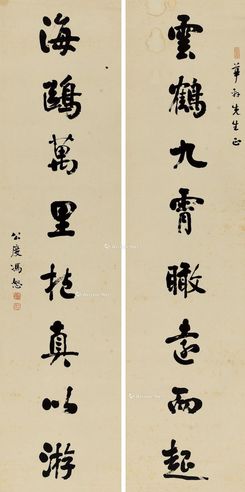 華新先生正
雲鶴九霄瞰遠而起
海鷗萬里抱真以游
公度馮恕